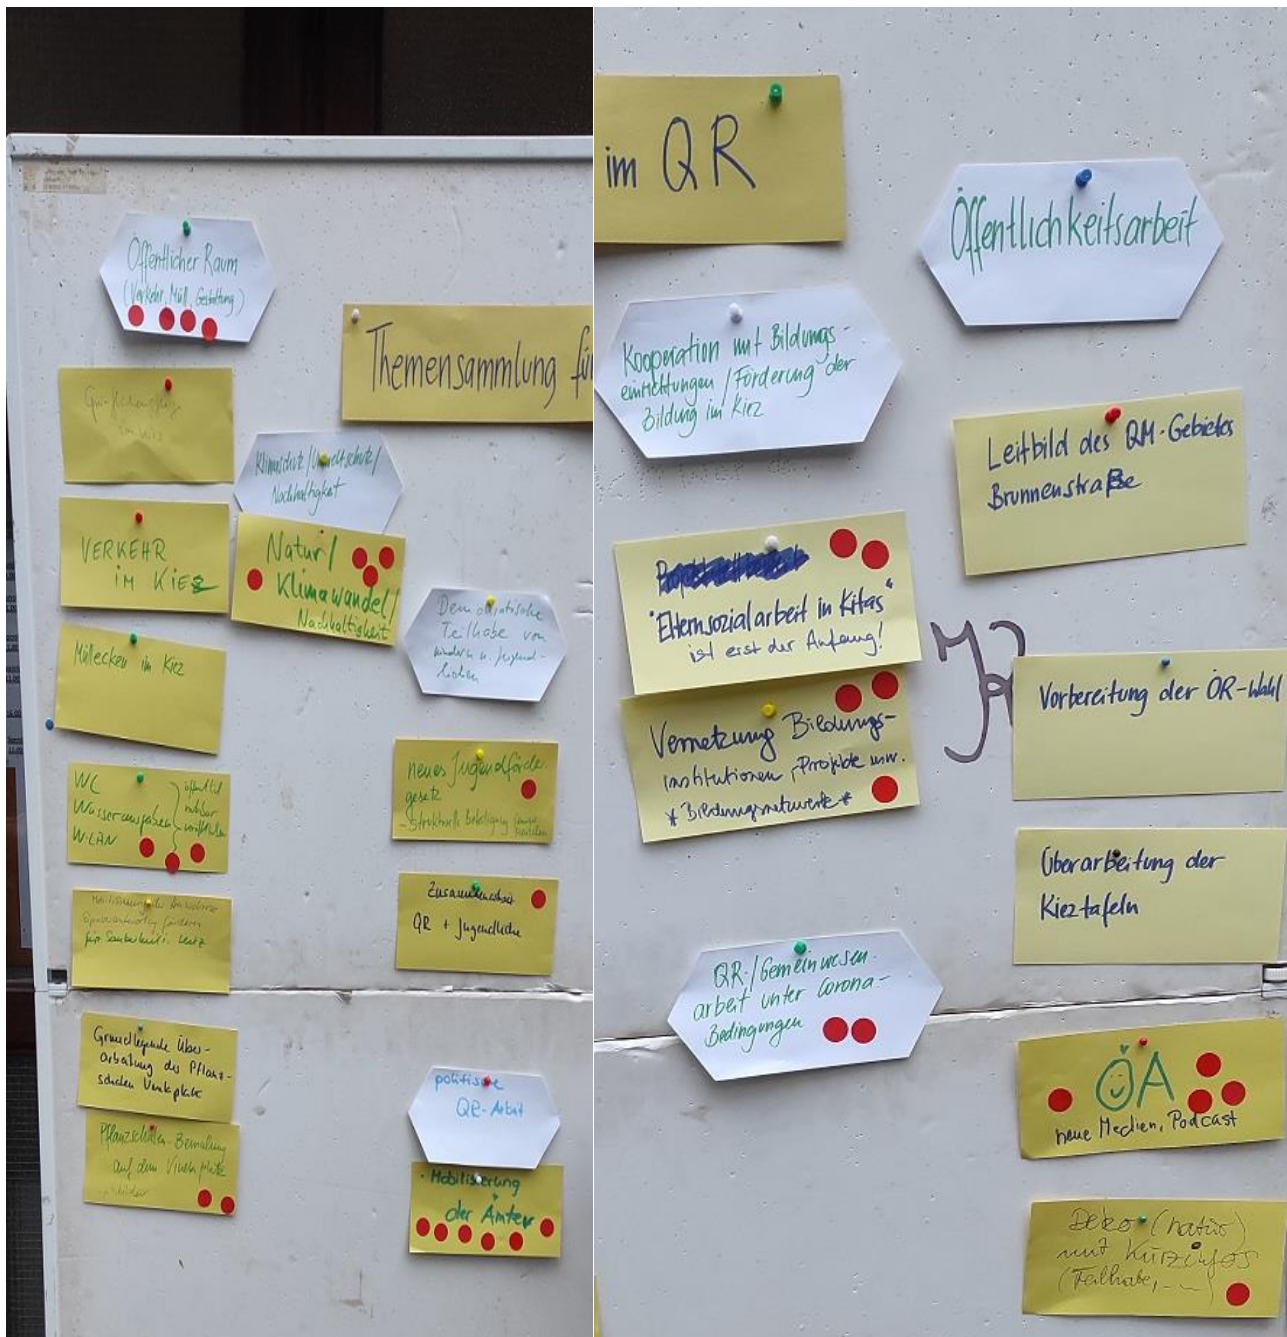 Öffentlicher Raum
(Verkehr, Müll, Gestaltung)
Themensammlung für
im Kiez
Klimaschutz/Umweltschutz/
Nachhaltigkeit
VERKEHR
IM KIEZ
Natur/
Klimawandel/
Nachhaltigkeit
Müllecken im Kiez
Demokratische
Teilhabe von
Kindern u. Jugend-
lichen
WC
W-LAN
öffentlich
nutzbar
neues Jugendförder
gesetz
- Strukturelle Beteiligung
für Sauberkeit i. Kiez
Zusammenarbeit
QR + Jugendliche
Grundlegende Über-
arbeitung der Pflanz-
schalen Vinetaplatz
Pflanzschalen-Bemalung
auf dem Vinetaplatz
politische
QR-Arbeit
- Mobilisierung
der Ämter
im QR
Öffentlichkeitsarbeit
Kooperation mit Bildungs-
einrichtungen / Förderung der
Bildung im Kiez
Leitbild des QM-Gebietes
Brunnenstraße
"Elternsozialarbeit in Kitas"
ist erst der Anfang!
Vernetzung Bildungs-
institutionen, Projekte usw.
* Bildungsnetzwerk *
Vorbereitung der QR-Wahl
Überarbeitung der
Kieztafeln
QR-/Gemeinwesen-
arbeit unter Corona-
Bedingungen
ÖA
neue Medien, Podcast
Deko (natur)
mit Kurzinfos
(Teilhabe, ...)